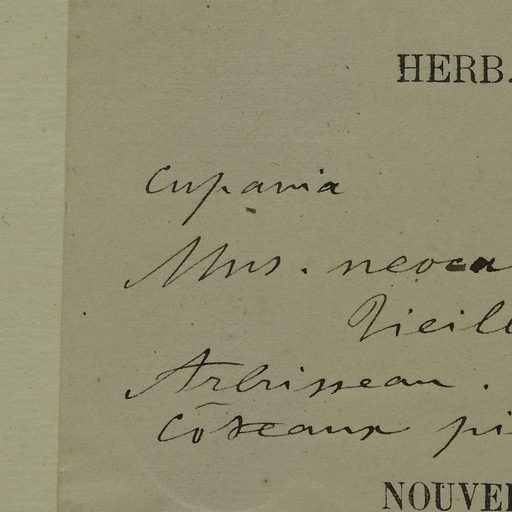 HERB.
Cupania
Mus. neoca
Vieill
Arbrisseau.
Côteaux pi
NOUVE